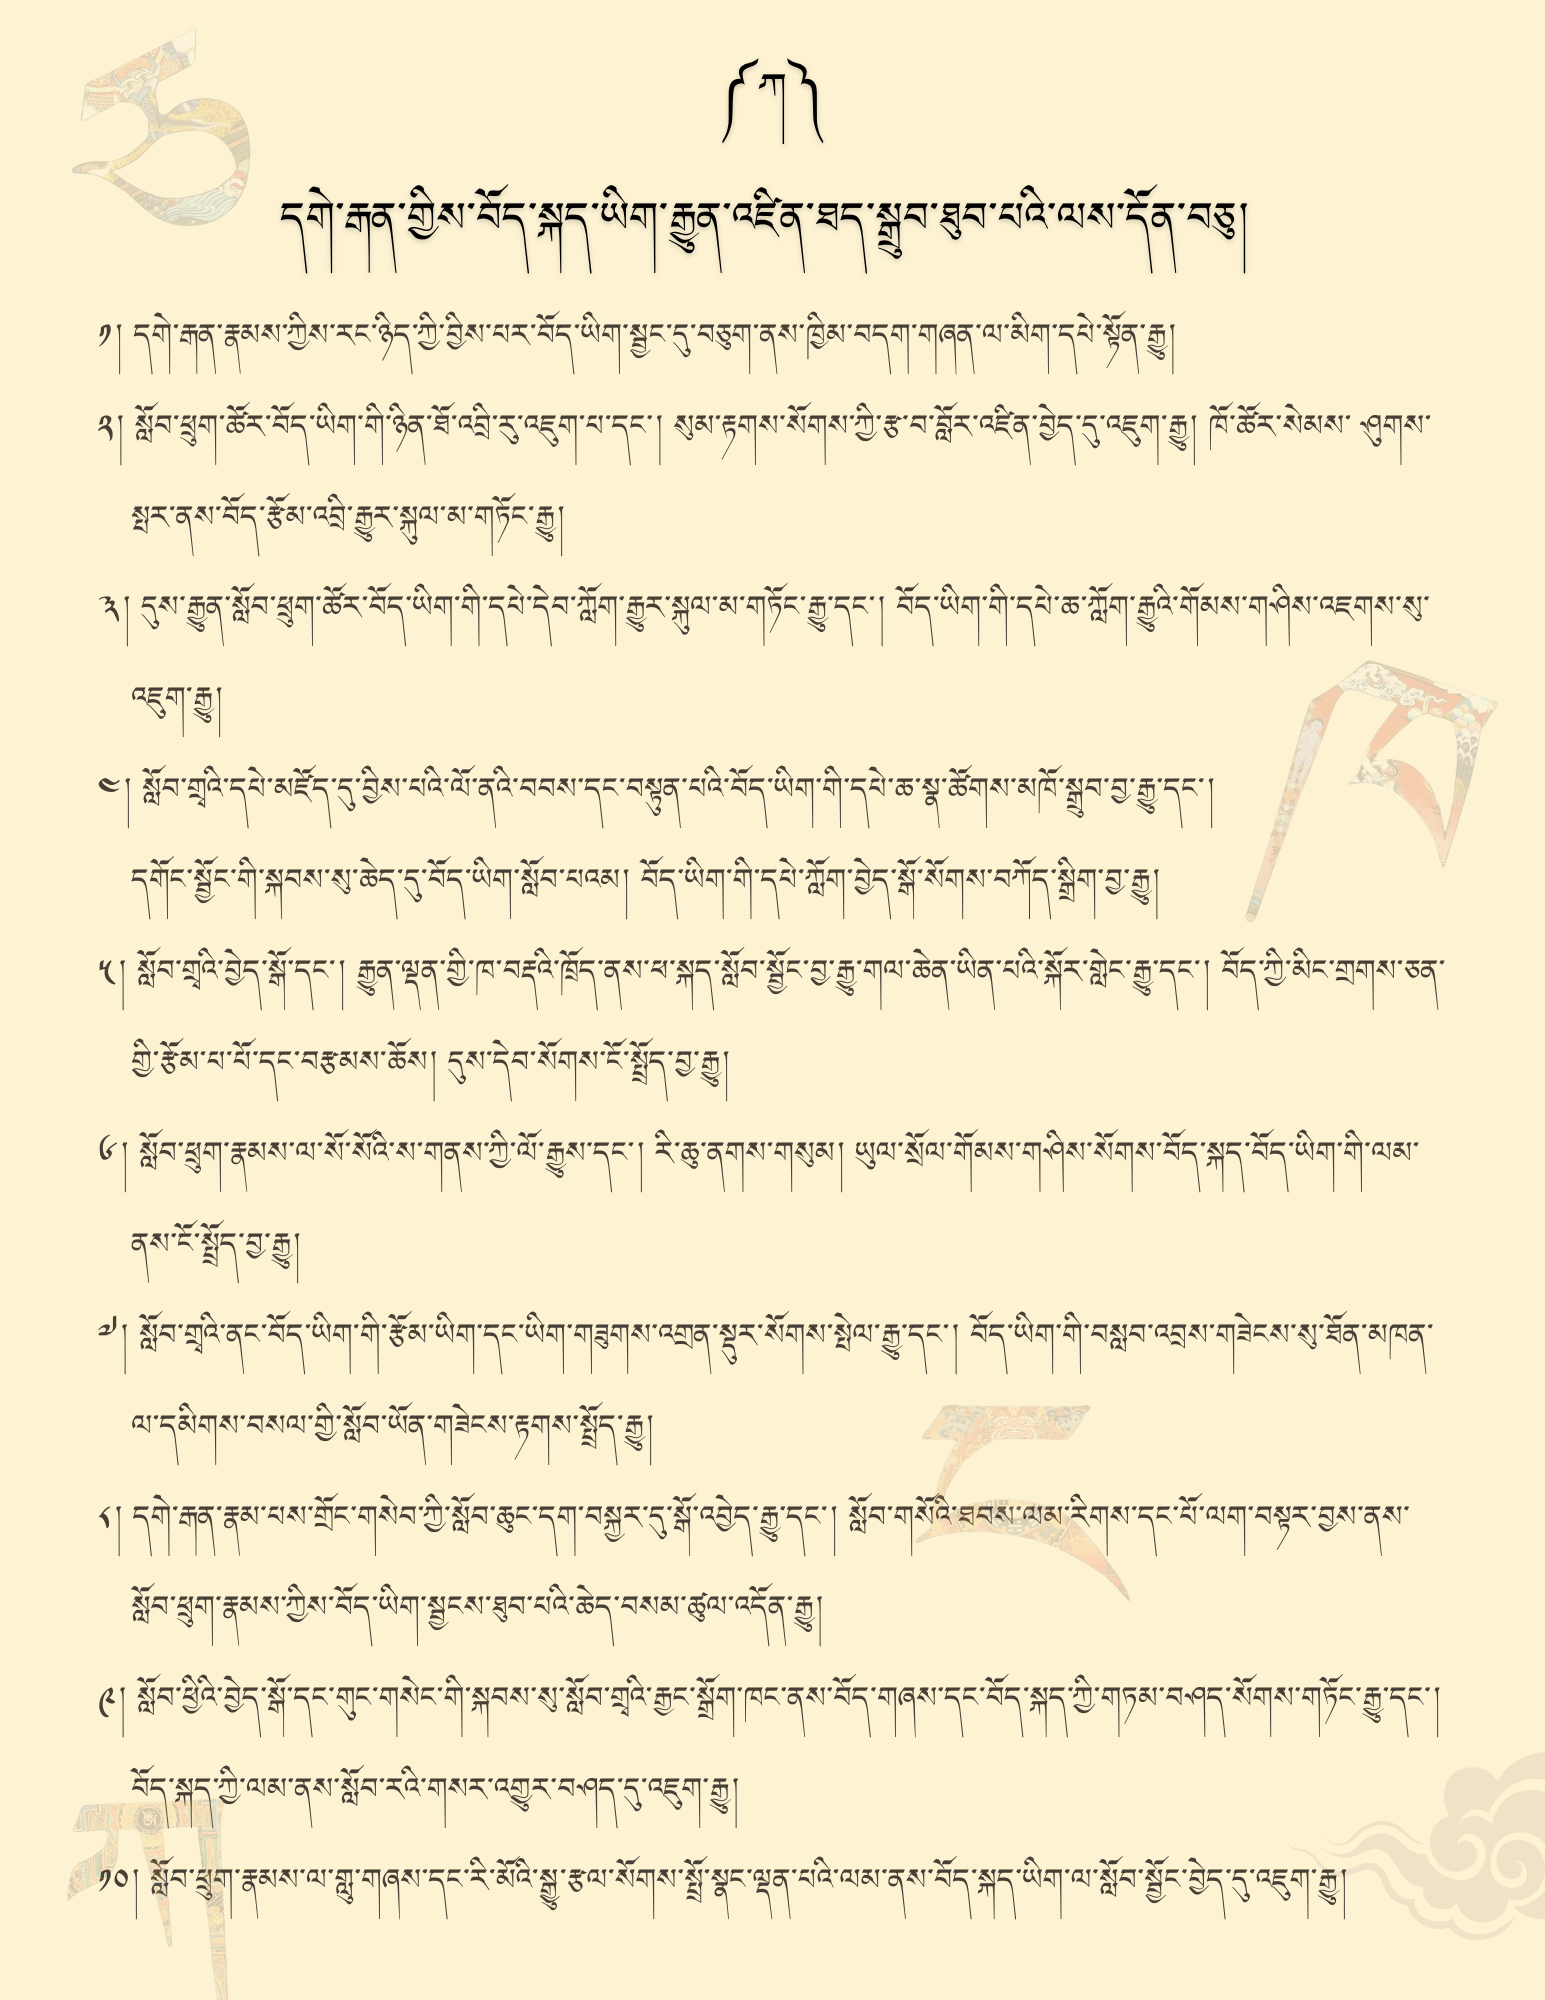 ༼ ཀ ༽
དགེ་རྒན་གྱིས་བོད་སྐད་ཡིག་རྒྱུན་འཛིན་ཐད་སྒྲུབ་ཐུབ་པའི་ལས་དོན་བཅུ།
༡། དགེ་རྒན་རྣམས་ཀྱིས་རང་ཉིད་ཀྱི་བྱིས་པར་བོད་ཡིག་སྦྱང་དུ་བཅུག་ནས་ཁྱིམ་བདག་གཞན་ལ་མིག་དཔེ་སྟོན་རྒྱུ།
༢། སློབ་ཕྲུག་ཚོར་བོད་ཡིག་གི་ཉིན་ཐོ་འབྲི་རུ་འཇུག་པ་དང་། སུམ་རྟགས་སོགས་ཀྱི་རྩ་བ་བློར་འཛིན་བྱེད་དུ་འཇུག་རྒྱུ། ཁོ་ཚོར་སེམས་ ཤུགས་
སྤར་ནས་བོད་རྩོམ་འབྲི་རྒྱུར་སྐུལ་མ་གཏོང་རྒྱུ།
༣། དུས་རྒྱུན་སློབ་ཕྲུག་ཚོར་བོད་ཡིག་གི་དཔེ་དེབ་ཀློག་རྒྱུར་སྐུལ་མ་གཏོང་རྒྱུ་དང་། བོད་ཡིག་གི་དཔེ་ཆ་ཀློག་རྒྱུའི་གོམས་གཤིས་འཇགས་སུ་
འཇུག་རྒྱུ།
༤། སློབ་གྲྭའི་དཔེ་མཛོད་དུ་བྱིས་པའི་ལོ་ནའི་བབས་དང་བསྟུན་པའི་བོད་ཡིག་གི་དཔེ་ཆ་སྣ་ཚོགས་མཁོ་སྒྲུབ་བྱ་རྒྱུ་དང་།
དགོང་སྦྱོང་གི་སྐབས་སུ་ཆེད་དུ་བོད་ཡིག་སློབ་པའམ། བོད་ཡིག་གི་དཔེ་ཀློག་བྱེད་སྒོ་སོགས་བཀོད་སྒྲིག་བྱ་རྒྱུ།
༥། སློབ་གྲྭའི་བྱེད་སྒོ་དང་། རྒྱུན་ལྡན་གྱི་ཁ་བརྡའི་ཁྲོད་ནས་ཕ་སྐད་སློབ་སྦྱོང་བྱ་རྒྱུ་གལ་ཆེན་ཡིན་པའི་སྐོར་གླེང་རྒྱུ་དང་། བོད་ཀྱི་མིང་གྲགས་ཅན་
གྱི་རྩོམ་པ་པོ་དང་བརྩམས་ཆོས། དུས་དེབ་སོགས་ངོ་སྤྲོད་བྱ་རྒྱུ།
༦། སློབ་ཕྲུག་རྣམས་ལ་སོ་སོའི་ས་གནས་ཀྱི་ལོ་རྒྱུས་དང་། རི་ཆུ་ནགས་གསུམ། ཡུལ་སྲོལ་གོམས་གཤིས་སོགས་བོད་སྐད་བོད་ཡིག་གི་ལམ་
ནས་ངོ་སྤྲོད་བྱ་རྒྱུ།
༧། སློབ་གྲྭའི་ནང་བོད་ཡིག་གི་རྩོམ་ཡིག་དང་ཡིག་གཟུགས་འགྲན་སྡུར་སོགས་སྤེལ་རྒྱུ་དང་། བོད་ཡིག་གི་བསླབ་འབྲས་གཟེངས་སུ་ཐོན་མཁན་
ལ་དམིགས་བསལ་གྱི་སློབ་ཡོན་གཟེངས་རྟགས་སྤྲོད་རྒྱུ།
༨། དགེ་རྒན་རྣམ་པས་གྲོང་གསེབ་ཀྱི་སློབ་ཆུང་དག་བསྐྱར་དུ་སྒོ་འབྱེད་རྒྱུ་དང་། སློབ་གསོའི་ཐབས་ལམ་རིགས་དང་པོ་ལག་བསྟར་བྱས་ནས་
སློབ་ཕྲུག་རྣམས་ཀྱིས་བོད་ཡིག་སྦྱངས་ཐུབ་པའི་ཆེད་བསམ་ཚུལ་འདོན་རྒྱུ།
༩། སློབ་ཕྱིའི་བྱེད་སྒོ་དང་གུང་གསེང་གི་སྐབས་སུ་སློབ་གྲྭའི་རྒྱང་སྒྲོག་ཁང་ནས་བོད་གཞས་དང་བོད་སྐད་ཀྱི་གཏམ་བཤད་སོགས་གཏོང་རྒྱུ་དང་།
བོད་སྐད་ཀྱི་ལམ་ནས་སློབ་རའི་གསར་འགྱུར་བཤད་དུ་འཇུག་རྒྱུ།
༡༠། སློབ་ཕྲུག་རྣམས་ལ་གླུ་གཞས་དང་རི་མོའི་སྒྱུ་རྩལ་སོགས་སྤྲོ་སྣང་ལྡན་པའི་ལམ་ནས་བོད་སྐད་ཡིག་ལ་སློབ་སྦྱོང་བྱེད་དུ་འཇུག་རྒྱུ།